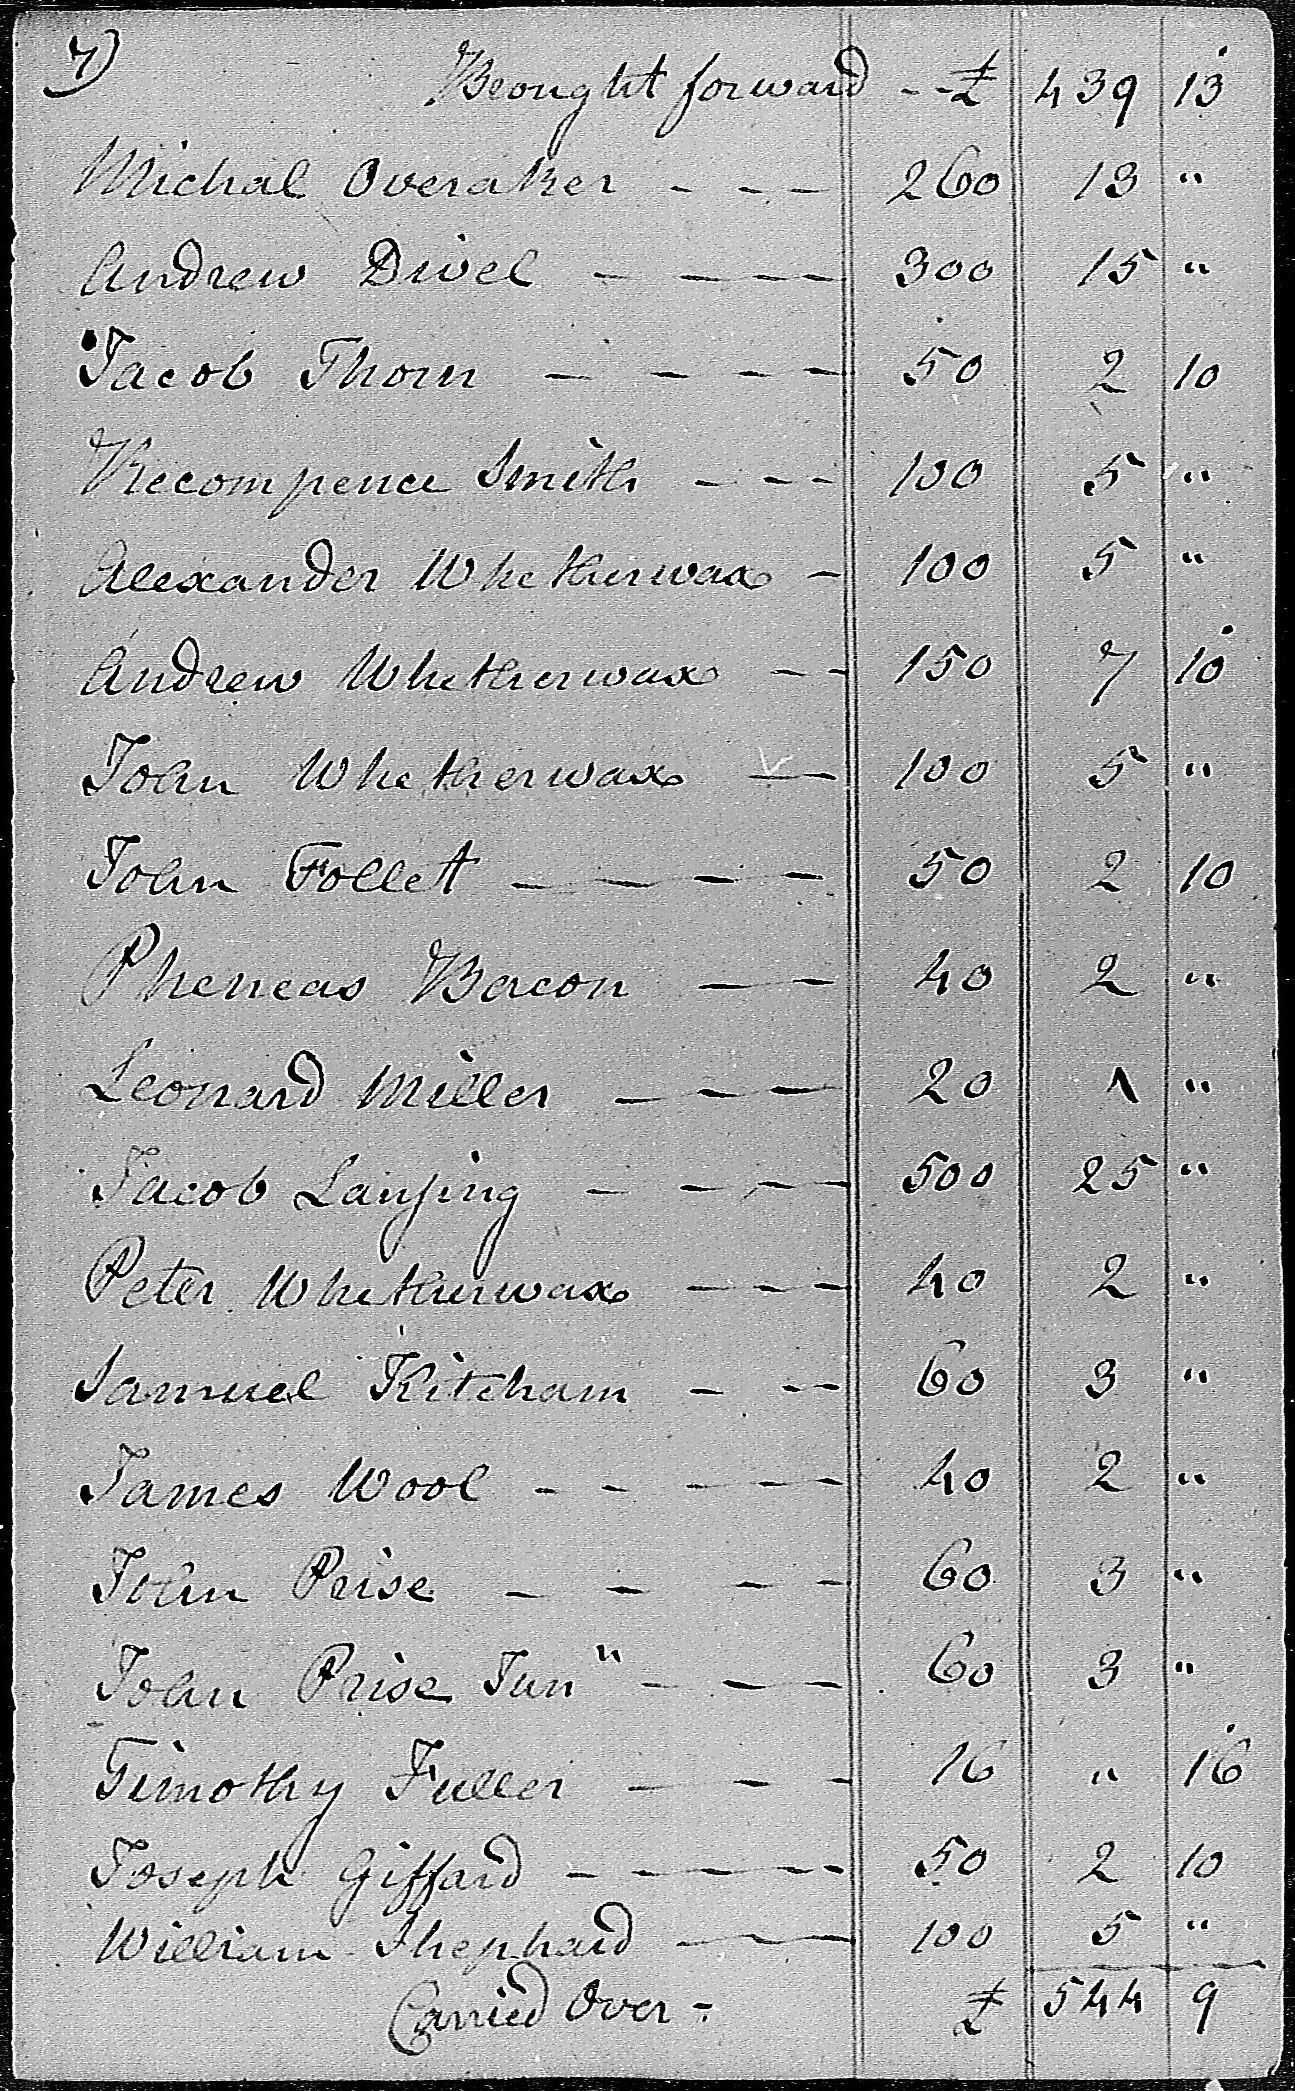 7)
Brought forward - - £ 439 13
Michal Overaker - - - 260 13 "
Andrew Divel - - - - 300 15 "
Jacob Thorn - - - - 50 2 10
Recompence Smith - - - 100 5 "
Alexander Whetherwax - 100 5 "
Andrew Whetherwax - - 150 7 10
John Whetherwax - - 100 5 "
John Follett - - - - 50 2 10
Pheneas Bacon - - 40 2 "
Leonard Miller - - - 20 1 "
Jacob Lansing - - - 500 25 "
Peter Whetherwax - - - 40 2 "
Samuel Kitcham - - - 60 3 "
James Wool - - - - - 40 2 "
John Prise - - - - 60 3 "
John Prise Jun" - - - 60 3 "
Timothy Fuller - - - 16 " 16
Joseph Giffard - - - - - 50 2 10
William Shephard - - - 100 5 "
Carried Over - £ 544 9